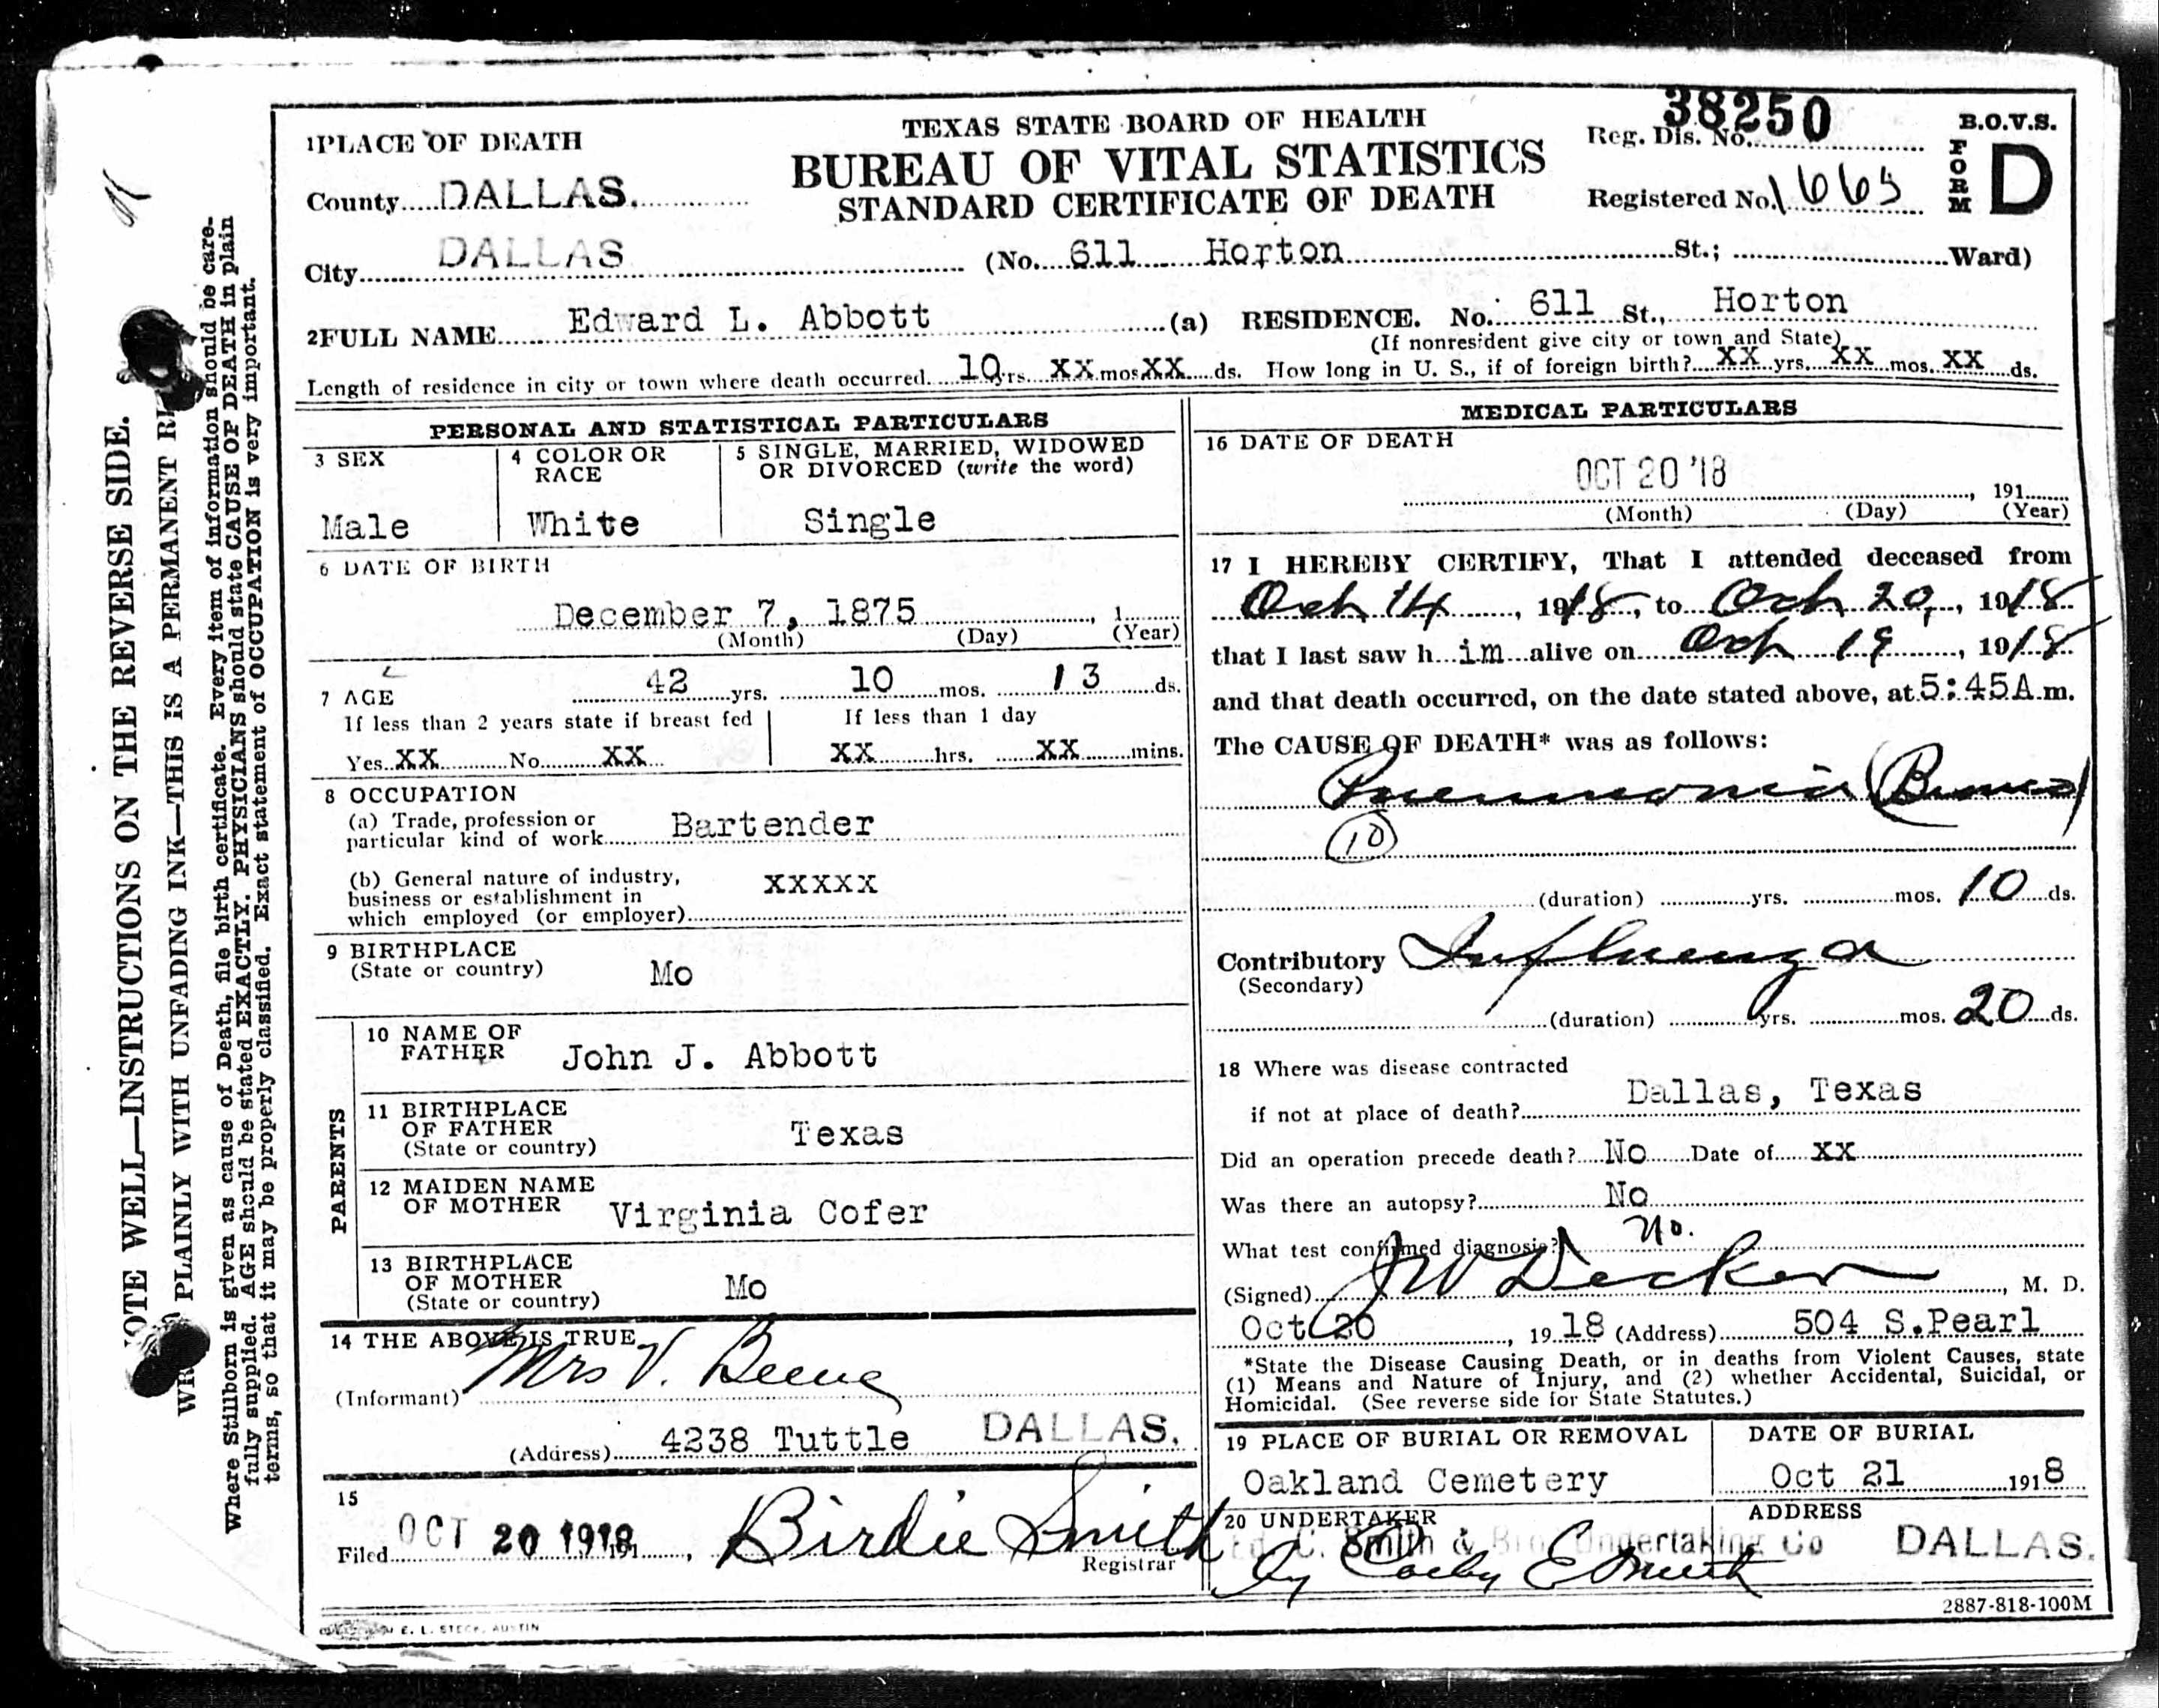 38250
TEXAS STATE BOARD OF HEALTH
BUREAU OF VITAL STATISTICS
STANDARD CERTIFICATE OF DEATH
Reg. Dis. No.
Registered No. 1665
B.O.V.S.
FORM D
1 PLACE OF DEATH
County DALLAS.
City DALLAS (No. 611 Horton St.; Ward)
2 FULL NAME Edward L. Abbott (a) RESIDENCE. No. 611 St., Horton
(If nonresident give city or town and State)
Length of residence in city or town where death occurred 10 yrs. XX mos XX ds. How long in U. S., if of foreign birth? XX yrs. XX mos. XX ds.
PERSONAL AND STATISTICAL PARTICULARS
3 SEX
Male
4 COLOR OR RACE
White
5 SINGLE, MARRIED, WIDOWED
OR DIVORCED (write the word)
Single
6 DATE OF BIRTH
December 7, 1875, 1
(Month) (Day) (Year)
7 AGE 42 yrs. 10 mos. 13 ds.
If less than 2 years state if breast fed
Yes XX No XX
If less than 1 day
XX hrs. XX mins.
8 OCCUPATION
(a) Trade, profession or
particular kind of work Bartender
(b) General nature of industry,
business or establishment in
which employed (or employer) XXXXX
9 BIRTHPLACE
(State or country) Mo
PARENTS
10 NAME OF
FATHER John J. Abbott
11 BIRTHPLACE
OF FATHER
(State or country) Texas
12 MAIDEN NAME
OF MOTHER Virginia Cofer
13 BIRTHPLACE
OF MOTHER
(State or country) Mo
14 THE ABOVE IS TRUE
(Informant) Mrs V. Beene
(Address) 4238 Tuttle DALLAS.
15
Filed OCT 20 1918, 191 Birdie Smith
Registrar
MEDICAL PARTICULARS
16 DATE OF DEATH
OCT 20 '18, 191
(Month) (Day) (Year)
17 I HEREBY CERTIFY, That I attended deceased from
Oct 14, 1918, to Oct 20, 1918
that I last saw h im alive on Oct 19, 1918
and that death occurred, on the date stated above, at 5:45A.m.
The CAUSE OF DEATH* was as follows:
Pneumonia
10
(duration) yrs. mos. 10 ds.
Contributory Influenza
(Secondary)
(duration) yrs. mos. 20 ds.
18 Where was disease contracted
if not at place of death? Dallas, Texas
Did an operation precede death? No Date of XX
Was there an autopsy? No
What test confirmed diagnosis? No.
(Signed) JW Decker, M. D.
Oct 20, 19 18 (Address) 504 S.Pearl
*State the Disease Causing Death, or in deaths from Violent Causes, state
(1) Means and Nature of Injury, and (2) whether Accidental, Suicidal, or
Homicidal. (See reverse side for State Statutes.)
19 PLACE OF BURIAL OR REMOVAL
Oakland Cemetery
DATE OF BURIAL
Oct 21 1918
20 UNDERTAKER
Ed. C. Smith & Bro Undertaking Co
By
ADDRESS
DALLAS.
2887-818-100M
E. L. STECK, AUSTIN
NOTE WELL—INSTRUCTIONS ON THE REVERSE SIDE.
PLAINLY WITH UNFADING INK—THIS IS A PERMANENT
Where Stillborn is given as cause of Death, file birth certificate. Every item of information should be care-
fully supplied. AGE should be stated EXACTLY. PHYSICIANS should state CAUSE OF DEATH in plain
terms, so that it may be properly classified. Exact statement of OCCUPATION is very important.